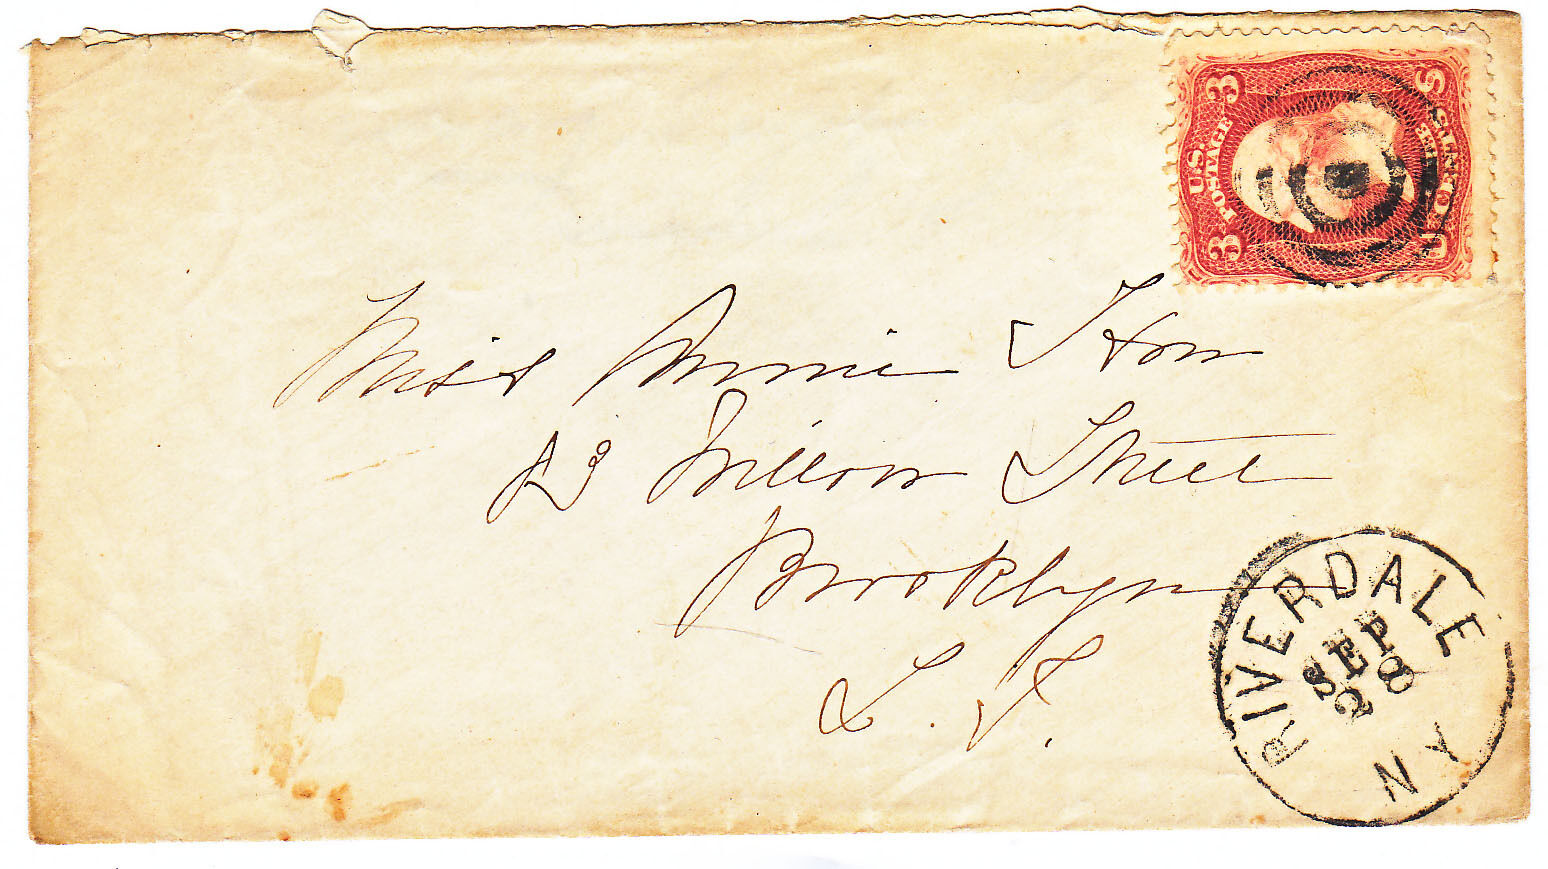 U.S. POSTAGE
3 3
THREE CENTS
U S
Miss Annie
Willow Street
Brooklyn
L. I.
RIVERDALE
SEP
28
NY